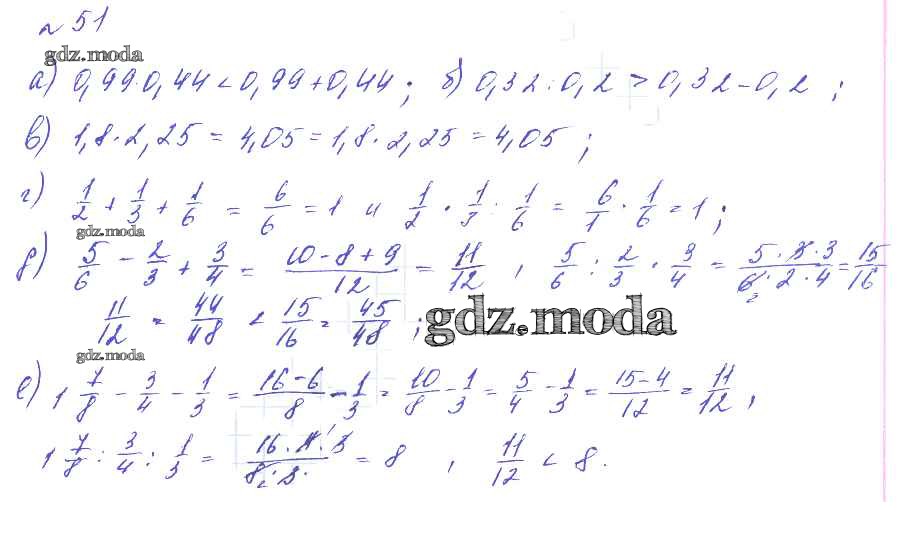 № 51
gdz.moda
а) 0,99·0,44 < 0,99+0,44; б) 0,32:0,2 > 0,32-0,2;
в) 1,8·2,25 = 4,05 = 1,8·2,25 = 4,05;
г) 1/2 + 1/3 + 1/6 = 6/6 = 1 и 1/2 · 1/3 : 1/6 = 6/1 · 1/6 = 1;
gdz.moda
д) 5/6 - 2/3 + 3/4 = (10-8+9)/12 = 11/12, 5/6 : 2/3 · 3/4 = (5·3·3)/(6·2·4) = 15/16
11/12 = 44/48 < 15/16 = 45/48;
gdz.moda
gdz.moda
е) 1 7/8 - 3/4 - 1/3 = (16-6)/8 - 1/3 = 10/8 - 1/3 = 5/4 - 1/3 = (15-4)/12 = 11/12,
1 7/8 : 3/4 : 1/3 = = 8, 11/12 < 8.